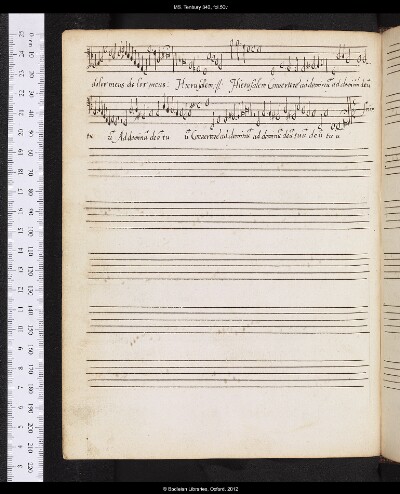 MS. Tenbury 340, fol.50v
dolor meus do lor meus: Hierusalem, ij. Hierusalem Convertere ad dominū ad dominū deū
tu ū Ad dominū deū tu ū Convertere ad dominū ad dominū deū tuū de ū tu ū
© Bodleian Libraries, Oxford, 2012